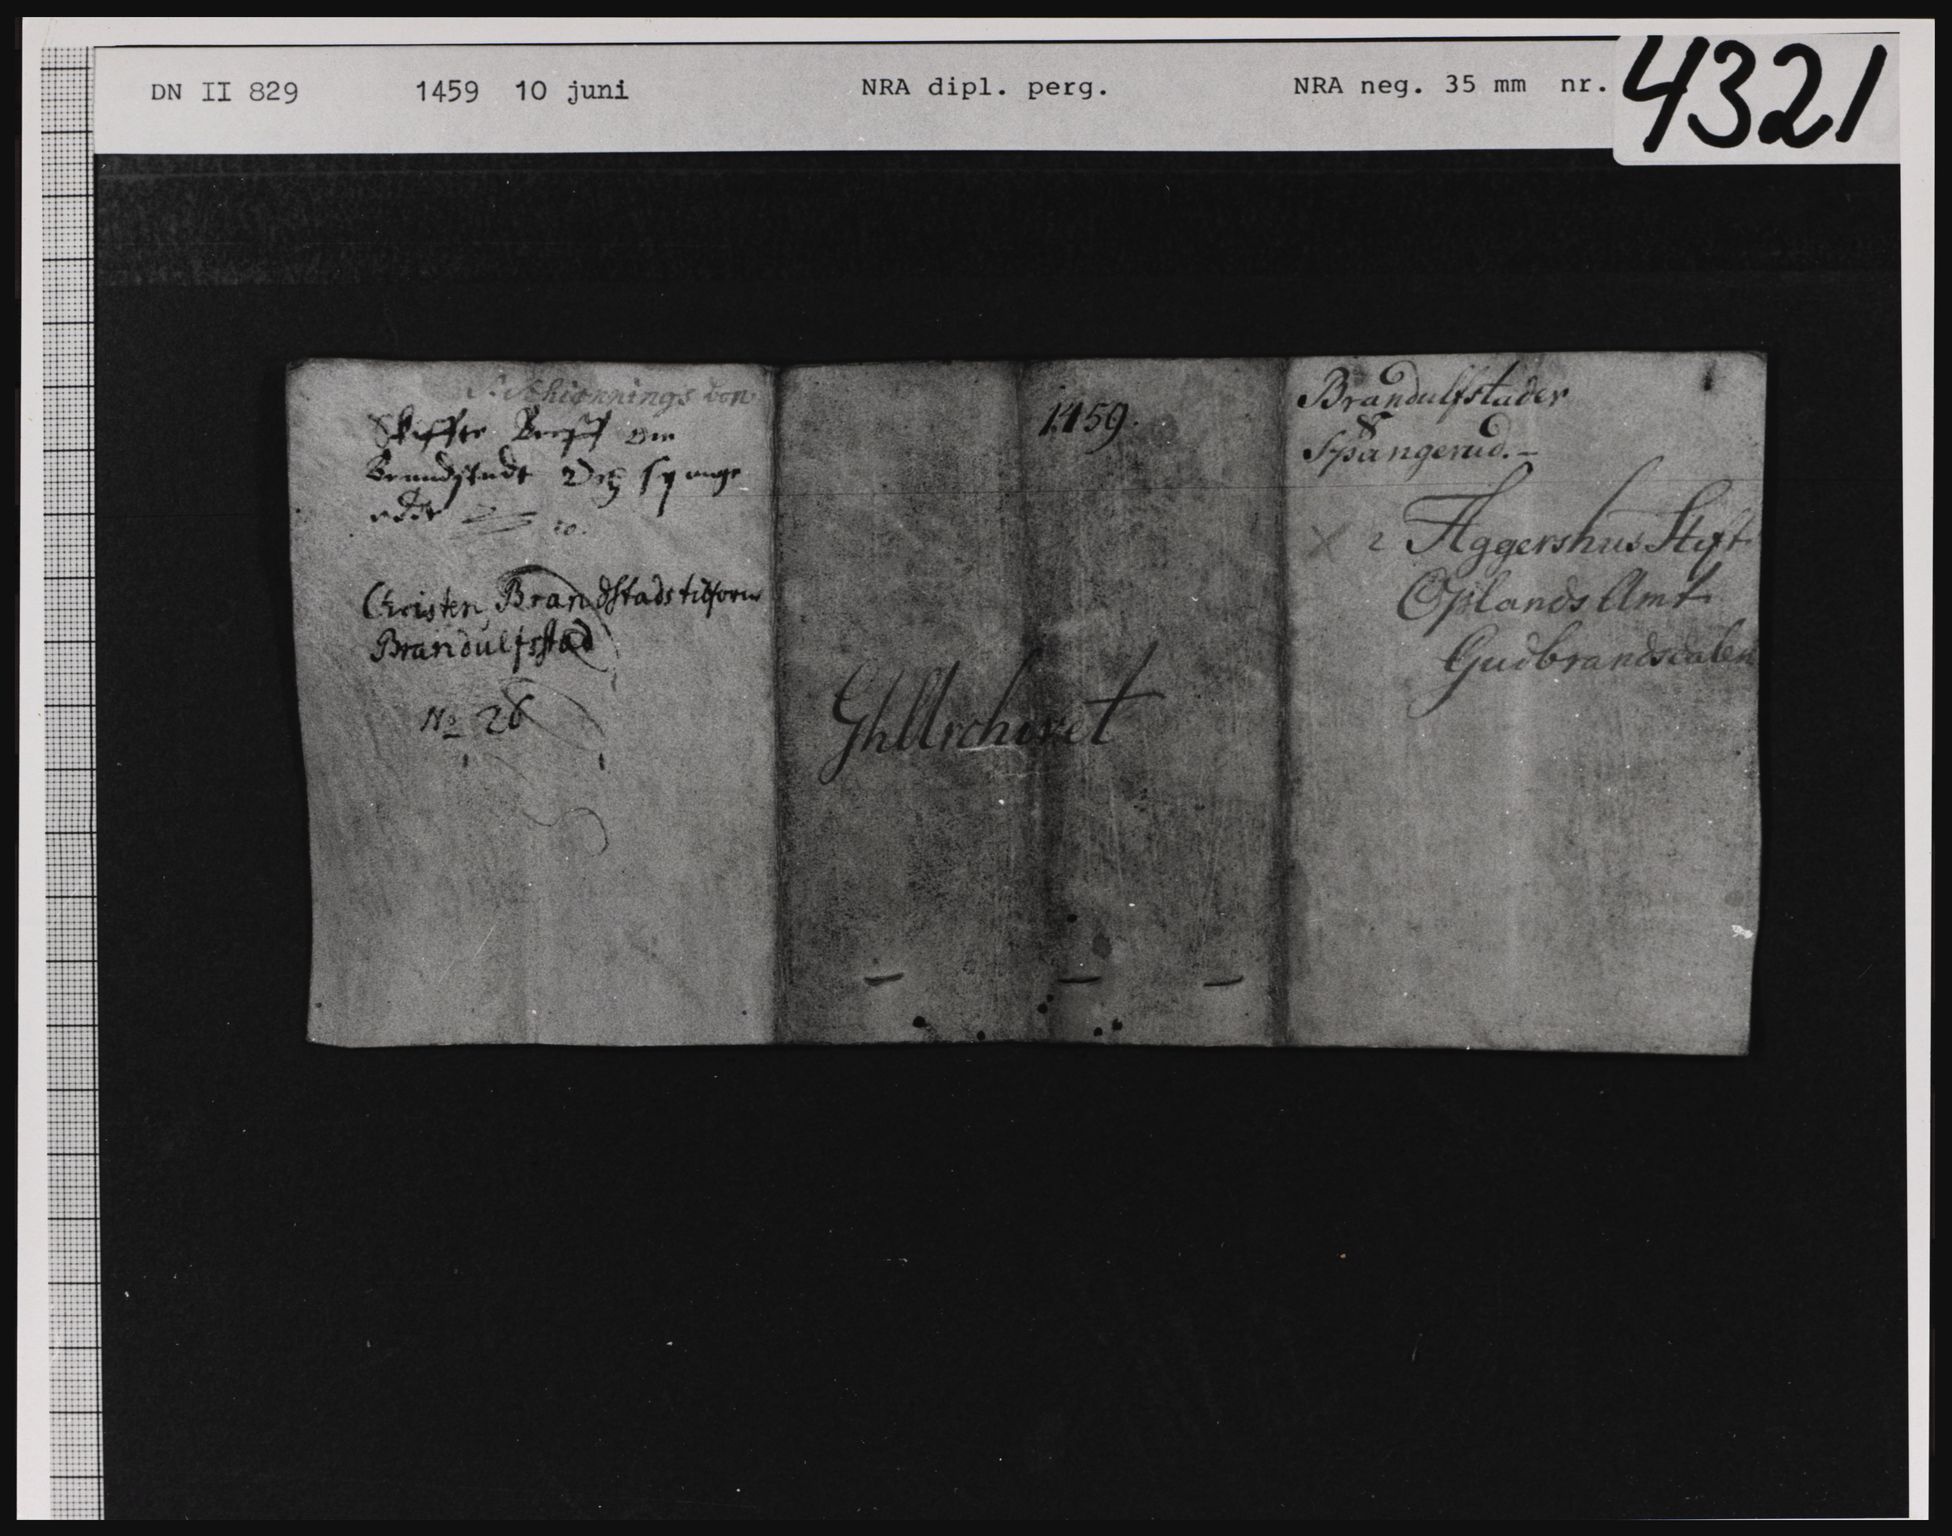 DN II 829 1459 10 juni NRA dipl. perg. NRA neg. 35 mm nr. 4321
Schiønnings
Skiffte Breff om
Brandstadt Och spange
rdt
Christen Brandstads tilforn
Brandulfsstad
No 26
1459.
GhlArchivet
Brandulfstader
&
Spangerud.-
X 2 Aggershus Stift
Oplands Amt
Gudbrandsdalen